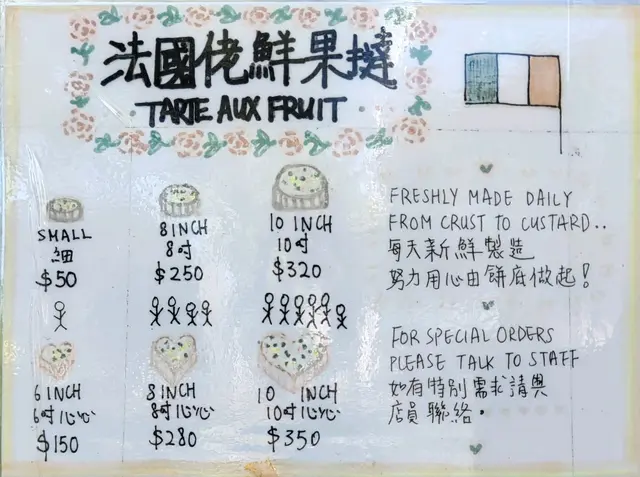 法國佬鮮果撻
TARTE AUX FRUIT
SMALL
細
$50
8 INCH
8吋
$250
10 INCH
10吋
$320
6 INCH
6吋心心
$150
8 INCH
8吋心心
$280
10 INCH
10吋心心
$350
FRESHLY MADE DAILY
FROM CRUST TO CUSTARD..
每天新鮮製造
努力用心由餅底做起!
FOR SPECIAL ORDERS
PLEASE TALK TO STAFF
如有特別需求請與
店員聯絡。